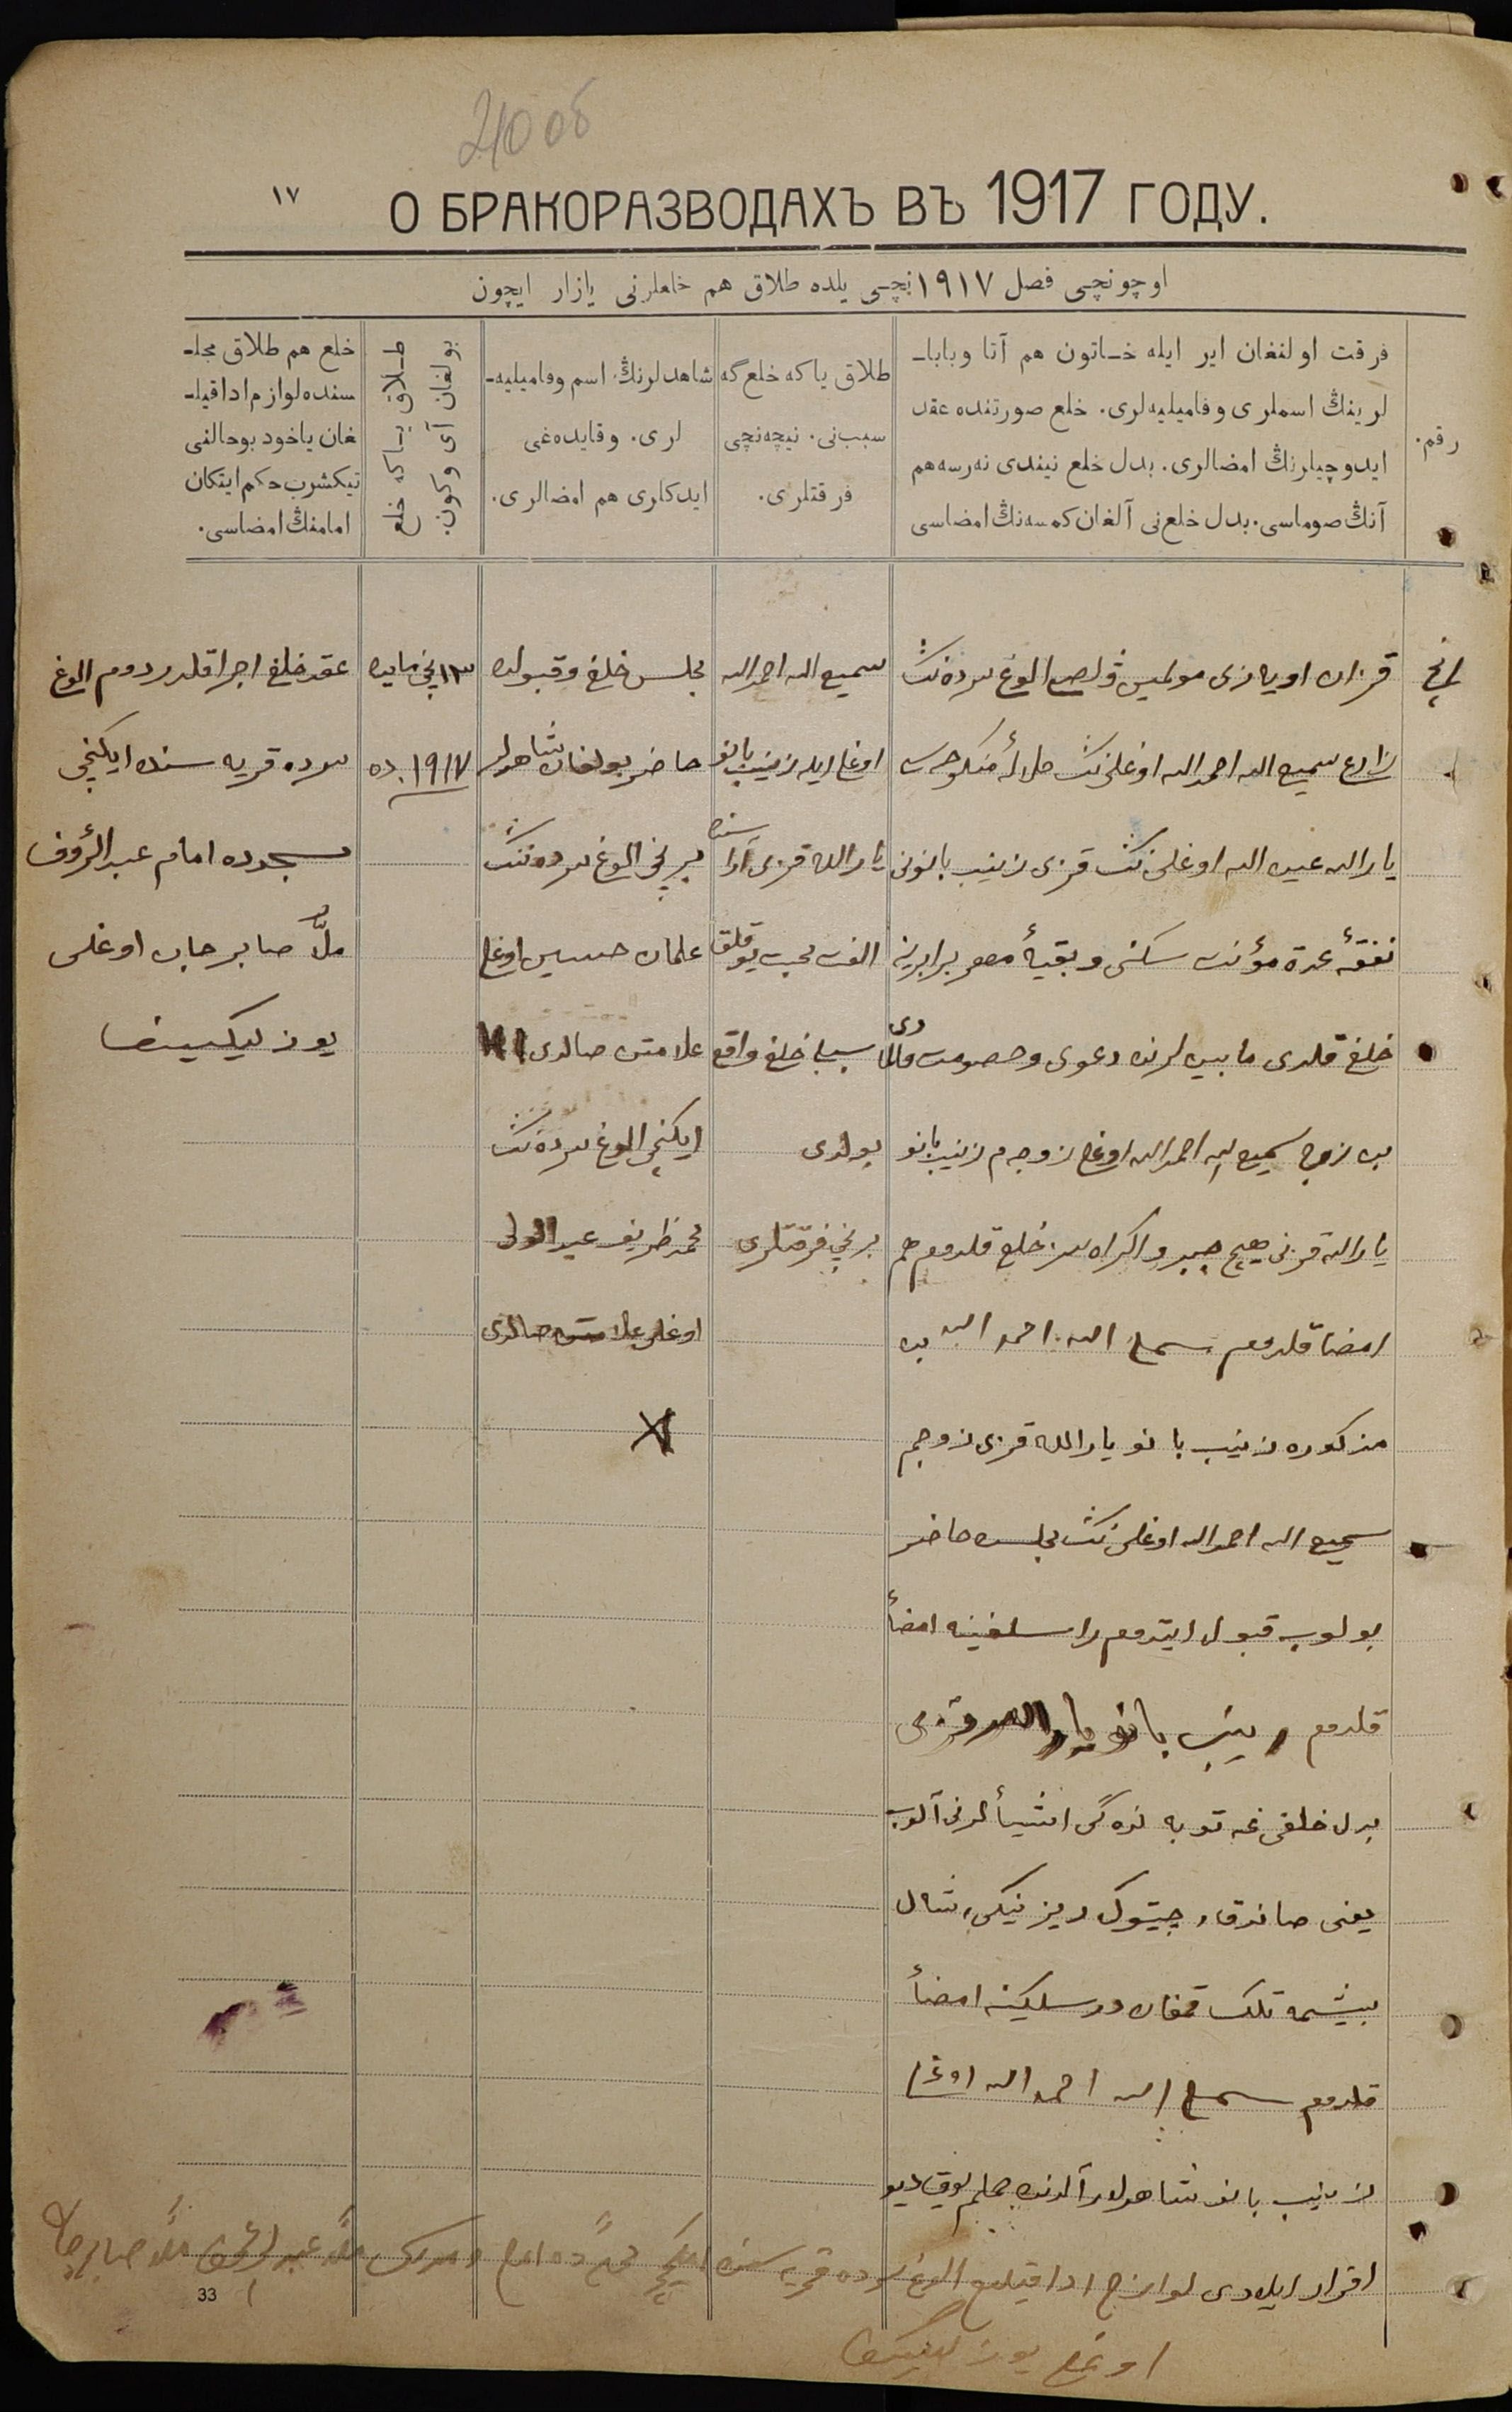 210 об
١٧
О БРАКОРАЗВОДАХЪ ВЪ 1917 ГОДУ.
اوچونچی فصل ١٩١٧ نچی یلده طلاق هم خلعلرنی یازار ایچون
رقم.
فرقت اولنغان ایر ایله خاتون هم آتا وبابا-
لرینڭ اسملری و فامیلیه‌لری. خلع صورتنده عقد
ایدوچیلرنڭ امضالری. بدل خلع نیندی نه‌رسه هم
آنڭ صوماسی. بدل خلع‌نی آلغان کمسه‌نڭ امضاسی
طلاق یا که خلع گه
سبب‌نی. نیچه‌نچی
فرقتلری.
شاهدلرنڭ اسم وفامیلیه-
لری. وقایده‌غی
ایدکاری هم امضالری.
طلاق یاکه خلع
بولغان آی وکون.
خلع هم طلاق مجلـ
سنده لوازم ادا قیلـ
غان یاخود بوحالنی
تیکشرب حکم ایتکان
امامنڭ امضاسی.
قزان اویازی مولمیس ولصی الوغ سرده‌نڭ
زارع سمیع الله احمدالله اوغلی‌نڭ حلالهٔ منکوحه‌سی
یارالله عبد الله اوغلی‌نڭ قزی زینب بانونی
نفقهٔ عدة مؤنت سکنی وبقیهٔ مهر برابرینه
خلع قلدی مابین‌لرنده دعوی وخصومت قالمادی
بن زوج سمیع الله احمدالله اوغلی زوجه‌م زینب بانو
یارالله قزنی هیچ جبر و اکراه سز خلع قلدوم هم
امضا قلدوم سمیع الله احمد الله بن
مذکوره زینب بانو یارالله قزی زوجم
سمیع الله احمدالله اوغلی‌نڭ مجلسنده حاضر
بولوب قبول ایتدوم راسلغینه امضأ
قلدوم زینب بانو یارالله قزی
بدل خلعی غه توبه‌نده‌گی اشیألرنی آلوب
یعنی صاندق، چیتوک ریزنیکی، شال
بیشمه تلک قمغان درسلکینه امضأ
قلدوم سمیع الله احمد الله اوغلی
زینب بانو شاهدلر آلدنده حملم یوق دیو
اقرار ایلادی لوازم ادا قیلدم الوغ سرده قریه سنده ایکنچی محله‌ده امام ومدرس ملّا عبد الرؤف ملّا صابرجان
اوغلی یوزلیکیف
سمیع الله احمدالله
اوغلی ایله زینب بانو
یارالله قزی آراسنده
الفت محبت یوقلق
سببلی خلع واقع
بولدی
برنچی فرقتلری
مجلس خلع وقبولده
حاضر بولغان شاهدلر
برنچی الوغ سرده‌نڭ
حسین اوغلی
علامتن صالدی
ایکنچی الوغ سرده‌نڭ
محمدظریف عبد الولی
اوغلی علامتن صالدی
١٣نچی مایده
١٩١٧ ده
عقد خلع اجرا قلدردوم الوغ
سرده قریه سنده ایکنچی
مسجدده امام عبدالرؤف
ملّا صابرجان اوغلی
33